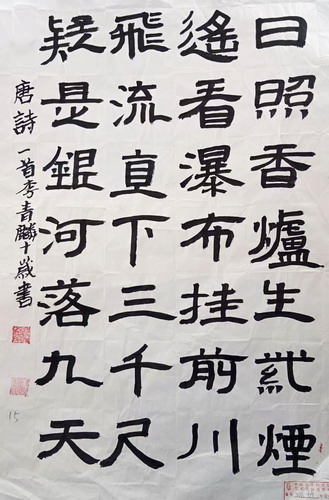 日照香爐生紫煙
遙看瀑布挂前川
飛流直下三千尺
疑是銀河落九天
唐詩一首李青麟十歲書
15